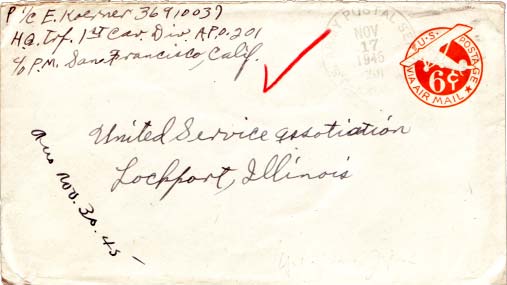 P f/c E. Koerner 36910037
Hq. Trp. 1st Cav. Div. A.P.O. 201
c/o P.M. San Francisco, Calif.
POSTAL
NOV
17
1945
U.S. POSTAGE
6¢
VIA AIR MAIL
United Service assotiation
Lockport, Illinois
Ans Nov. 30. 45